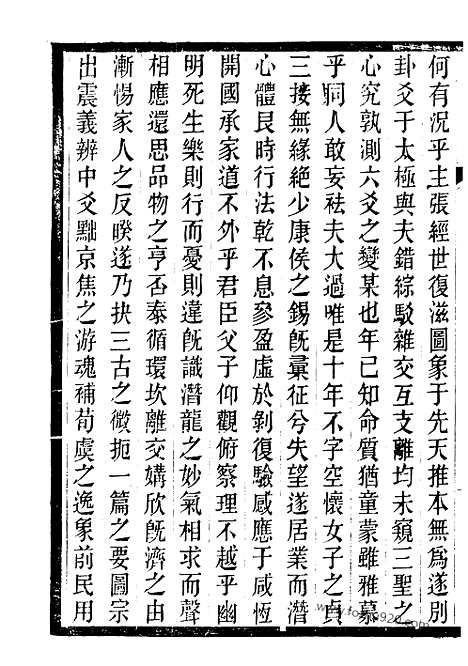 何有況乎主張經世復滋圖象于先天推本無爲遂別
卦爻于太極與夫錯綜駁雜交互支離均未窺三聖之
心究孰測六爻之變某也年已知命質猶童蒙雖雅慕
乎同人敢妄祛夫大過唯是十年不字空懷女子之貞
三接無緣絶少康侯之錫旣彙征兮失望遂居業而潛
心體艮時行法乾不息參盈虛於剝復驗感應于咸恆
開國承家道不外乎君臣父子仰觀俯察理不越乎幽
明死生樂則行而憂則違旣識潛龍之妙氣相求而聲
相應還思品物之亨否泰循環坎離交媾欣旣濟之由
漸惕家人之反睽遂乃抉三古之微扼一篇之要圖宗
出震義辨中爻黜京焦之游魂補荀虞之逸象前民用